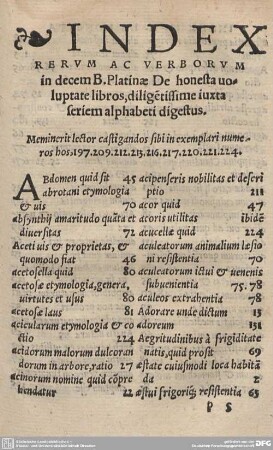 INDEX
RERVM AC VERBORVM
in decem B. Platinæ De honesta uo-
luptate libros, diligẽtissime iuxta
seriem alphabeti digestus.
Meminerit lector castigandos sibi in exemplari nume-
ros hos. 197. 209. 212. 213. 216. 217. 220. 221. 224.
ABdomen quid sit 45
abrotani etymologia
& uis 70
absynthij amaritudo quãta et
diuersitas 72
Aceti uis & proprietas, &
quomodo fiat 46
acetosella quid 80
acetosæ etymologia, genera,
uirtutes et usus 80
acetosæ laus 81
acicularum etymologia & co
ctio 224
acidorum malorum dulcoran
dorum in arbore, ratio 27
acinorum nomine quid cõpre
hendatur 22
acipenseris nobilitas et descri
ptio 211
acor quid 47
acoris utilitas ibidẽ
acucellæ quid 224
aculeatorum animalium læsio
ni resistentia 70
aculeatorum ictui & uenenis
subuenientia 75. 78
aculeos extrahentia 78
Adorare unde dictum 15
adoreum 151
Aegritudinibus à frigiditate
natis, quid prosit 69
æstate cuiusmodi loca habitã
da 2
æstui frigoriq; resistentia 65
P 5